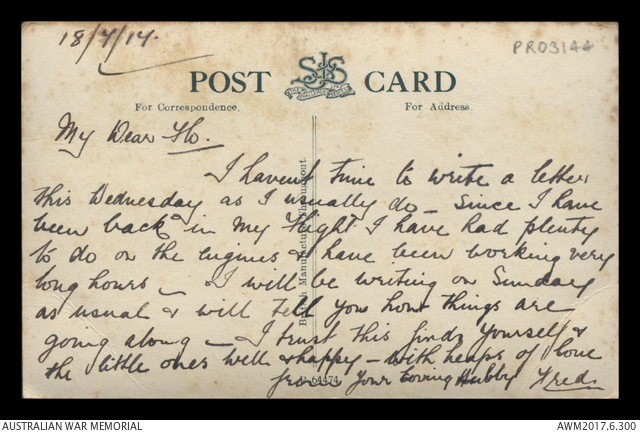 18/7/17.
PR03144
POST CARD
For Correspondence.
For Address.
My Dear Flo.
I havent time to write a letter
this Wednesday as I usually do - Since I have
been back in my Flight I have had plenty
to do on the engines & have been working very
long hours - I will be writing on Sunday
as usual & will tell you how things are
going along - I trust this finds yourself &
the little ones well & happy - with heaps of love
from Your Loving Hubby Fred.
British Manufacture Throughout.
64474
AUSTRALIAN WAR MEMORIAL
AWM2017.6.300